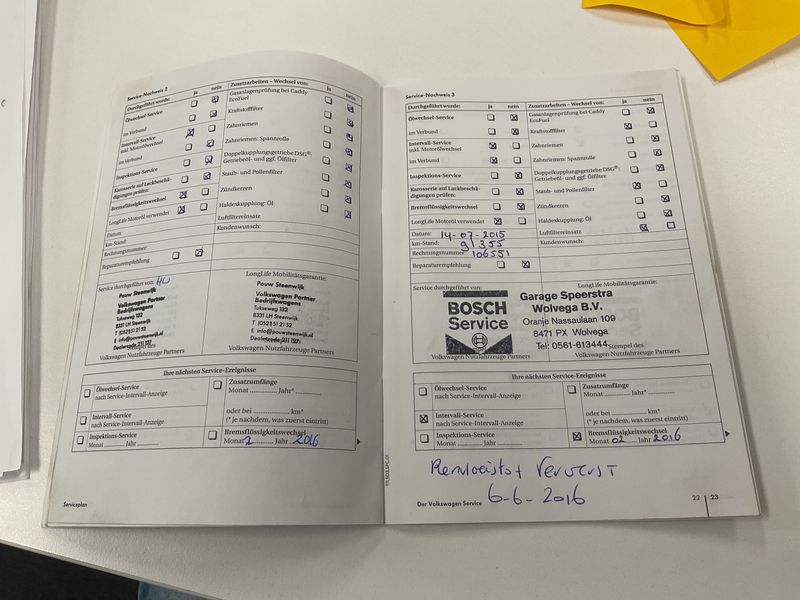 Service-Nachweis 2
Durchgeführt wurde: ja nein
Ölwechsel-Service
im Verbund
Intervall-Service
inkl. Motorölwechsel
im Verbund
Inspektions-Service
Karosserie auf Lackbeschä-
digungen prüfen:
Bremsflüssigkeitswechsel
LongLife Motoröl verwendet
Datum:
km-Stand:
Rechnungsnummer:
Reparaturempfehlung
Zusatzarbeiten – Wechsel von: ja nein
Gasanlagenprüfung bei Caddy
EcoFuel
Kraftstofffilter
Zahnriemen
Zahnriemen: Spannrolle
Doppelkupplungsgetriebe DSG®:
Getriebeöl- und ggf. Ölfilter
Staub- und Pollenfilter
Zündkerzen
Haldexkupplung: Öl
Luftfiltereinsatz
Kundenwunsch:
Service durchgeführt von:
Pouw Steenwijk
Volkswagen Partner
Bedrijfswagens
Tukseweg 132
8331 LH Steenwijk
T (0521) 51 21 52
E info@pouwsteenwijk.nl
Stempel des
Volkswagen Nutzfahrzeuge Partners
LongLife Mobilitätsgarantie:
Pouw Steenwijk
Volkswagen Partner
Bedrijfswagens
Tukseweg 132
8331 LH Steenwijk
T (0521) 51 21 52
E info@pouwsteenwijk.nl
Volkswagen Nutzfahrzeuge Partners
Ihre nächsten Service-Ereignisse
Ölwechsel-Service
nach Service-Intervall-Anzeige
Intervall-Service
nach Service-Intervall-Anzeige
Inspektions-Service
Monat .......... Jahr ..........
Zusatzumfänge
Monat .......... Jahr* ..........
oder bei .......... km*
(* je nachdem, was zuerst eintritt)
Bremsflüssigkeitswechsel
Monat 2 Jahr 2016
Serviceplan
Service-Nachweis 3
Durchgeführt wurde: ja nein
Ölwechsel-Service
im Verbund
Intervall-Service
inkl. Motorölwechsel
im Verbund
Inspektions-Service
Karosserie auf Lackbeschä-
digungen prüfen:
Bremsflüssigkeitswechsel
LongLife Motoröl verwendet
Datum: 14-07-2015
km-Stand: 91355
Rechnungsnummer: 106551
Reparaturempfehlung
Zusatzarbeiten – Wechsel von: ja nein
Gasanlagenprüfung bei Caddy
EcoFuel
Kraftstofffilter
Zahnriemen
Zahnriemen: Spannrolle
Doppelkupplungsgetriebe DSG®:
Getriebeöl- und ggf. Ölfilter
Staub- und Pollenfilter
Zündkerzen
Haldexkupplung: Öl
Luftfiltereinsatz
Kundenwunsch:
Service durchgeführt von:
LongLife Mobilitätsgarantie:
BOSCH
Service
Garage Speerstra
Wolvega B.V.
Oranje Nassaulaan 109
8471 PX Wolvega
Tel: 0561-613444
Stempel des
Volkswagen Nutzfahrzeuge Partners
Volkswagen Nutzfahrzeuge Partners
Ihre nächsten Service-Ereignisse
Ölwechsel-Service
nach Service-Intervall-Anzeige
Intervall-Service
nach Service-Intervall-Anzeige
Inspektions-Service
Monat .......... Jahr ..........
Zusatzumfänge
Monat .......... Jahr* ..........
oder bei .......... km*
(* je nachdem, was zuerst eintritt)
Bremsflüssigkeitswechsel
Monat 02 Jahr 2016
Remvloeistof Ververst
6-6-2016
Der Volkswagen Service
22 | 23